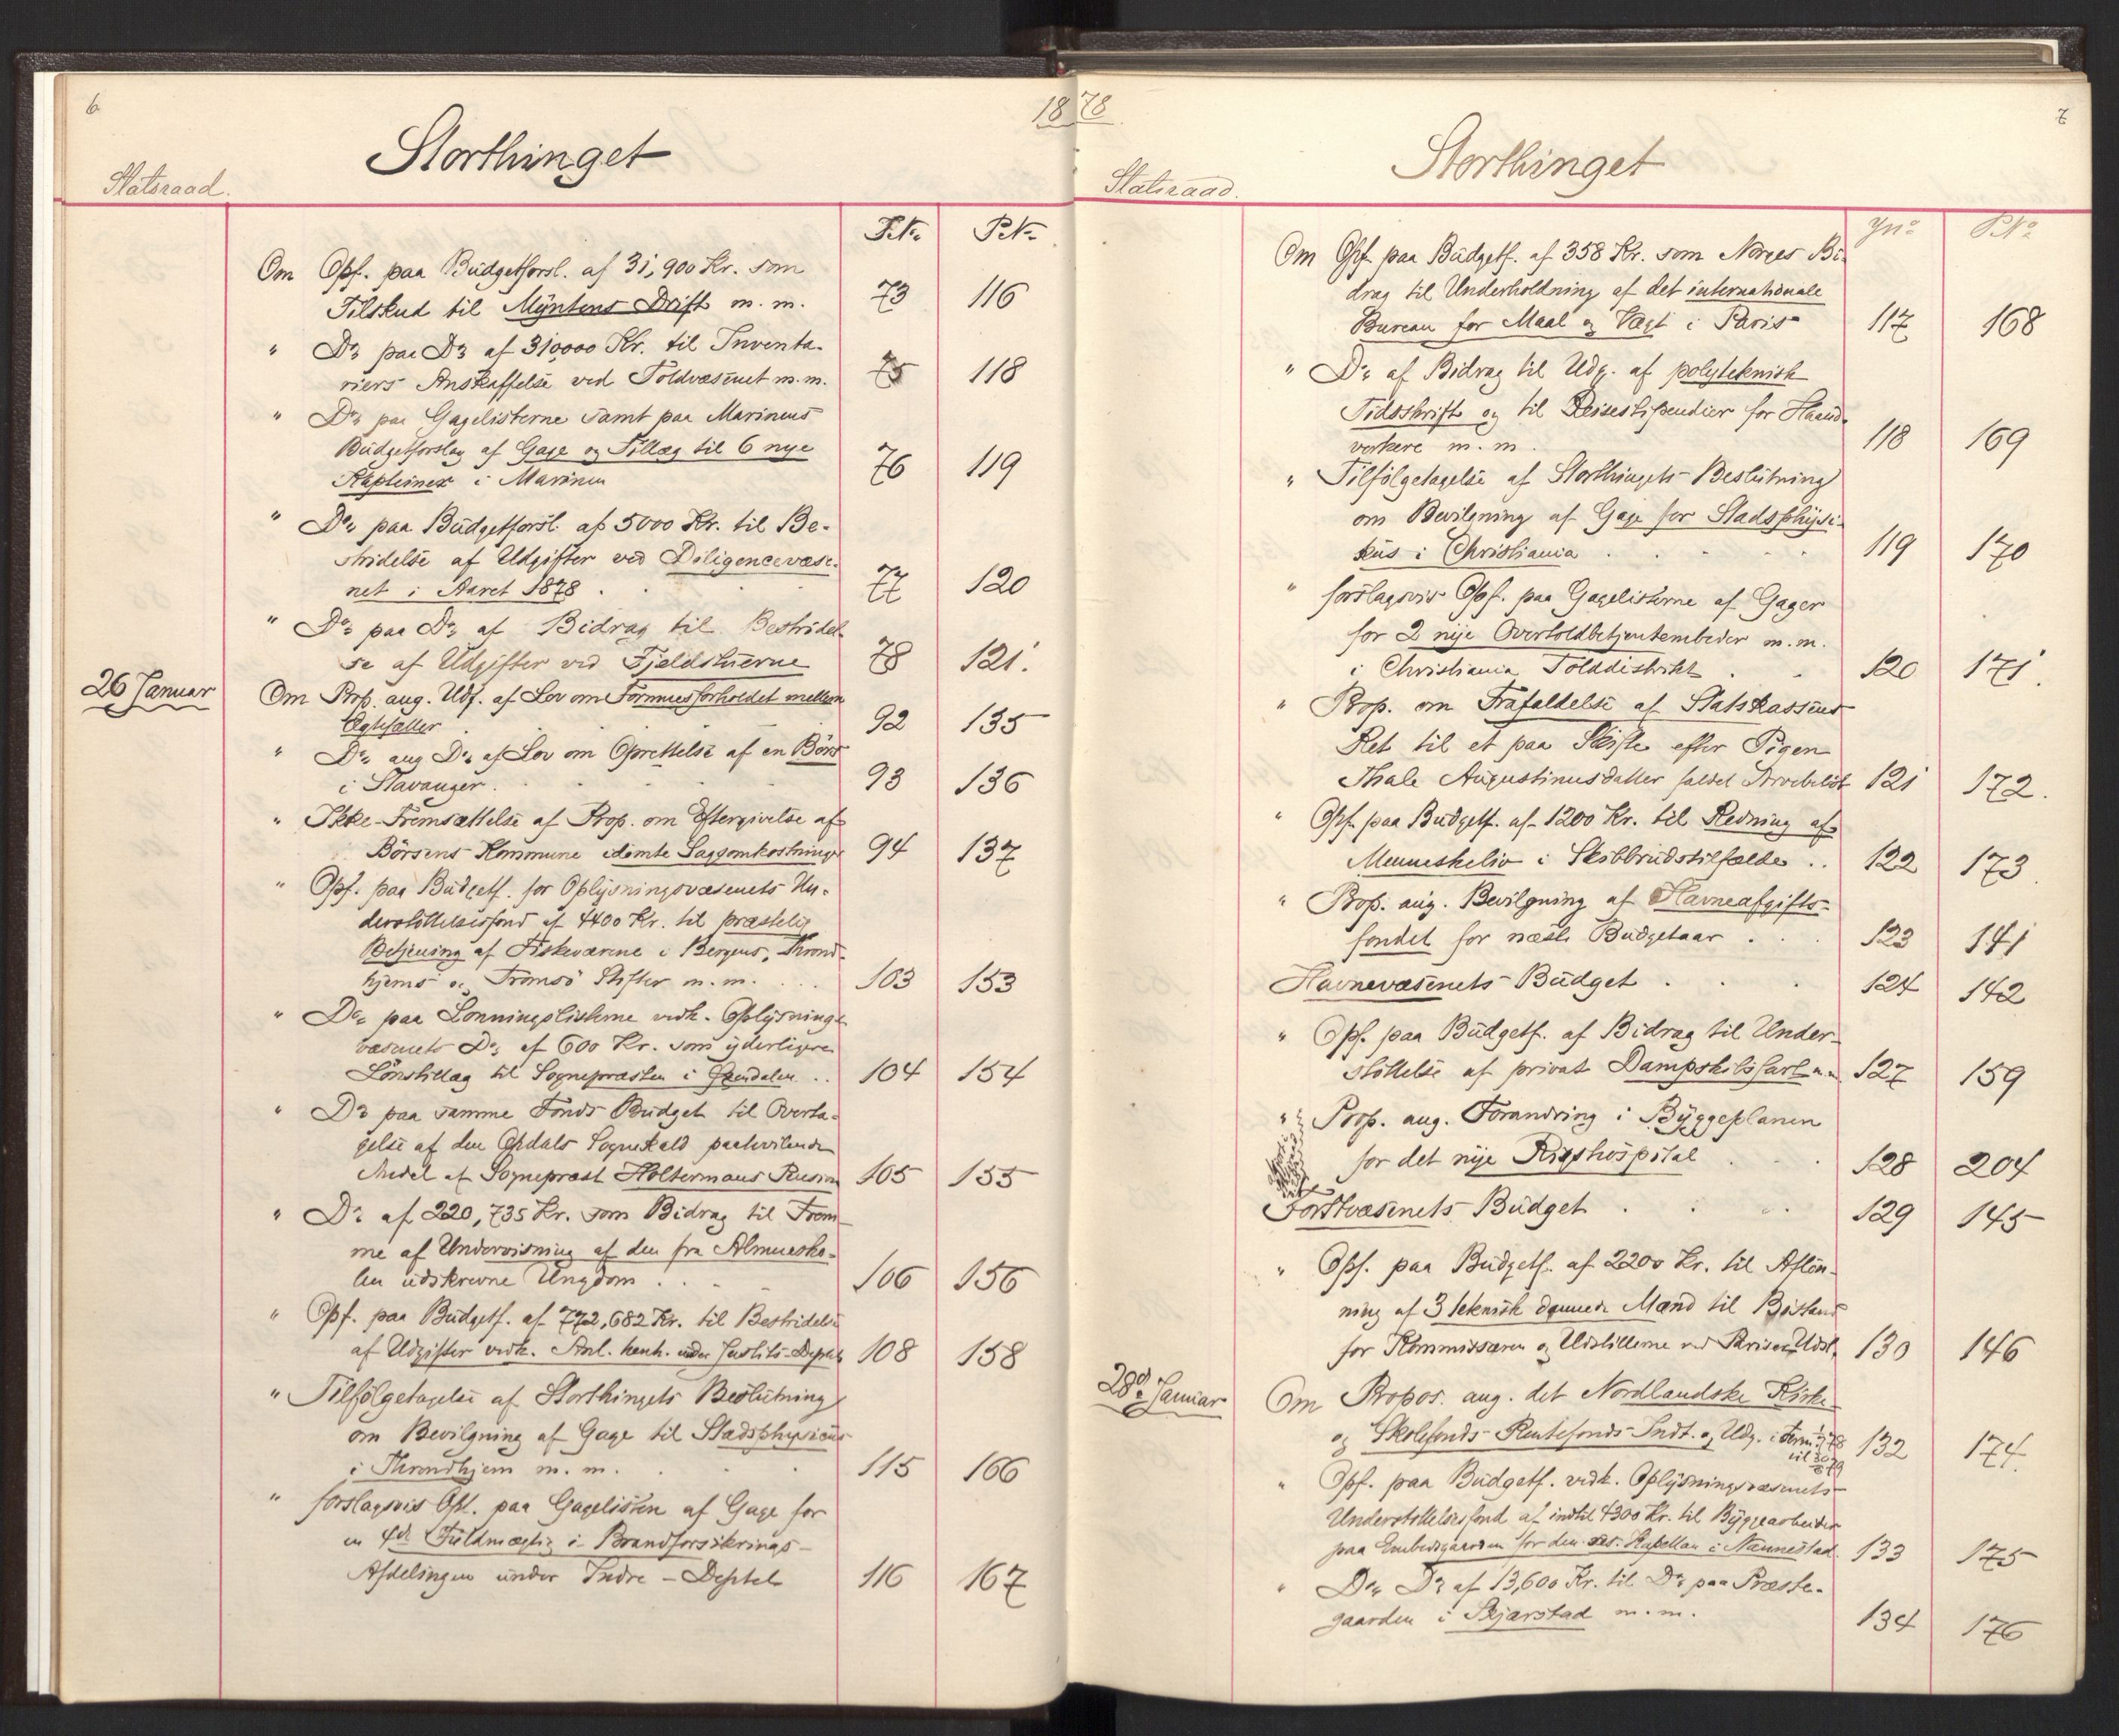 6
1878
Storthinget
Statsraad.
J.No. P.No.
Om Opf. paa Büdgetforsl. af 31,900 Kr. som
Tilskud til Myntens Drift m. m. 73 116
" Do paa Do af 310,000 Kr. til Inventa-
riers Anskaffelse ved Toldvæsenet m.m. 75 118
" Do paa Gagelisterne samt paa Marinens
Büdgetforslag af Gage og Tillæg til 6 nye
Kapteiner i Marinen 76 119
" Do paa Büdgetforsl. af 5000 Kr. til Be-
stridelse af Udgifter ved Diligencevæse-
net i Aaret 1878 . 77 120
" Do paa Do af Bidrag til Bestridel-
se af Udgifter ved Fjeldstuerne 78 121.
26 Januar Om Prop. ang. Udf. af Lov om Formuesforholdet mellem
Ægtefæller . 92 135
" Do ang Do af Lov om Oprettelse af en Börs
i Stavanger. 93 136
" Ikke-Fremsættelse af Prop. om Eftergivelse af
Börsens Kommune idömte Sagsomkostninger 94 137
" Opf. paa Büdgetf. for Oplysningsvæsenets Un-
derstöttelsesfond af 4400 Kr. til præstelig
Betjening af Fiskeværene i Bergens, Thrond-
hjems og Tromsö Stifter m. m. . . . 103 153
" Do paa Lönningslisterne vedk. Oplysnings-
væsenets Do af 600 Kr. som yderligere
Lönstillæg til Sognepræsten i . . 104 154
" Do paa samme Fonds Büdget til Overta-
gelse af den Opdals Sognekald paahvilende
Andel af Sognepræst Holtermans Pension 105 155
" Do af 220,735 Kr. som Bidrag til Frem-
me af Undervisning af den fra Almuesko-
len udskrevne Ungdom . . . 106 156
" Opf. paa Büdgetf. af 772,682 Kr. til Bestridelse
af Udgifter vedk. Anl. henh. under Justits-Deptet 108 158
" Tilfölgetagelse af Storthingets Beslutning
om Bevilgning af Gage til Stadsphysicus
i Throndhjem m. m. . . 115 166
" forslagsvis Opf. paa Gagelisten af Gage for
en 4de Fuldmægtig i Brandforsikrings-
Afdelingen under Indre-Deptet 116 167
7
Storthinget
Statsraad.
Jno. P.No.
Om Opf. paa Büdgetf. af 358 Kr. som Norges Bi-
drag til Underholdning af det internationale
Bureau for Maal og Vægt i Paris 117 168
" Do af Bidrag til Udg. af polyteknisk
Tidsskrift og til Reisestipendier for Haand-
verkere m. m. 118 169
" Tilfölgetagelse af Storthingets Beslutning
om Bevilgning af Gage for Stadsphysi-
kus i Christiania . . . . 119 170
" forslagsvis Opf. paa Gagelisterne af Gager
for 2 nye Overtoldbetjentembeder m. m.
i Christiania Tolddistrikt . . 120 171.
" Prop. om Frafaldelse af Statskassens
Ret til et paa Skifte efter Pigen
Thale Augustinusdatter faldet Arvebelöb 121 172.
" Opf. paa Büdgetf. af 1200 Kr. til Redning af
Menneskeliv i Skibbrudstilfælde . . 122 173.
" Prop. ang. Bevilgning af Havneafgifts-
fondet for næste Büdgetaar . . . 123 141
Havnevæsenets Büdget . . . 124 142
" Opf. paa Büdgetf. af Bidrag til Under-
stöttelse af privat Dampskibsfart m.m. 127 159
" Prop. ang. Forandring i Byggeplanen
for det nye Rigshospital . . . 128 204
Forstvæsenets Büdget . . . 129 145
" Opf. paa Büdgetf. af 2200 Kr. til Aflön-
ning af 3 teknisk dannede Mænd til Bistand
for Kommissæren og Udstillerne ved Pariser Udst. 130 146
28de Januar Om Propos. ang. det Nordlandske Kirke-
og Skolefonds Rentefonds Indt. og Udg. i Term. 1/7 78
til 30/6 79 132 174.
" Opf. paa Büdgetf. vedk. Oplysningsvæsenets
Understöttelsesfond af indtil 4300 Kr. til Byggearbeider
paa Embedsgaarden for den res. Kapellan i Nannestad. 133 175
" Do Do af 13,600 Kr. til Do paa Præste-
gaarden i Skjærstad m. m. 134 176